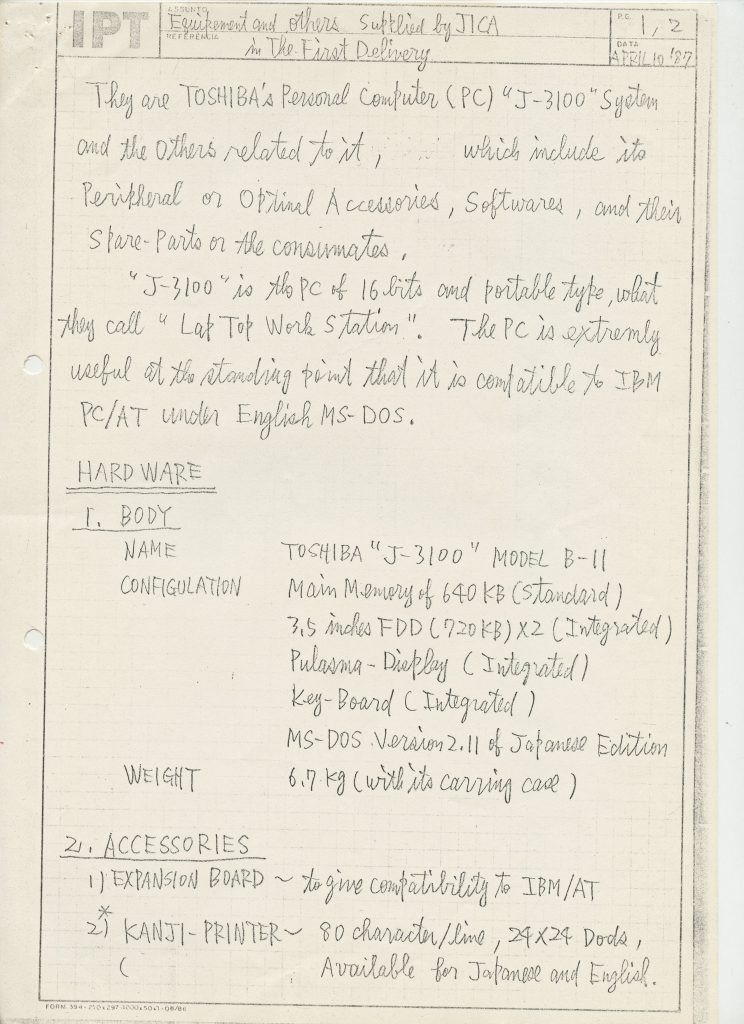 IPT
ASSUNTO
Equipement and others Supplied by JICA
REFERÊNCIA
in The First Delivery
P.G.
1, 2
DATA
APRIL 10 '87
They are TOSHIBA's Personal Computer (PC) "J-3100" System
and the Others related to it, which include its
Peripheral or Optinal Accessories, Softwares, and their
Spare-Parts or the consumates.
"J-3100" is the PC of 16 bits and portable type, what
they call "Lap Top Work Station". The PC is extremly
useful at the standing point that it is compatible to IBM
PC/AT under English MS-DOS.
HARDWARE
1. BODY
NAME TOSHIBA "J-3100" MODEL B-11
CONFIGULATION Main Memory of 640 KB (Standard)
3.5 inches FDD (720KB) X2 (Integrated)
Pulasma-Display (Integrated)
Key-Board (Integrated)
MS-DOS Version 2.11 of Japanese Edition
WEIGHT 6.7 Kg (with its carring case)
2. ACCESSORIES
1) EXPANSION BOARD ~ to give compatibility to IBM/AT
*
2) KANJI-PRINTER ~ 80 character/line, 24X24 Dods,
( Available for Japanese and English.